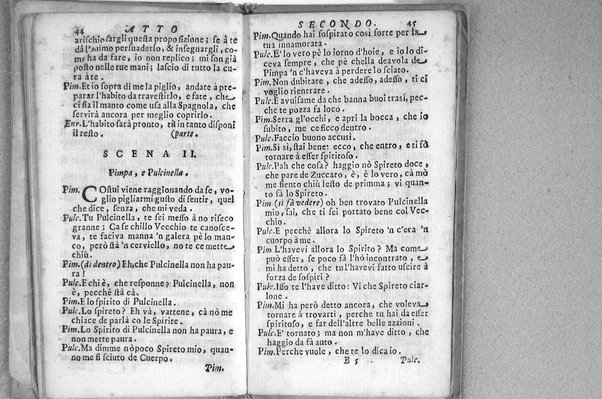 44 ATTO
arischio sargli questa proposizione; se à te
dà l'animo persuaderlo, & insegnargli, co-
me ha da fare, io non replico; mi son già
posto nelle tue mani; lascio di tutto la cu-
ra à te.
Pim. Et io sopra di me la piglio, andate à pre-
parar l'habito da travestirlo, e fate, che
ci sia il manto come usa alla Spagnola, che
servirà ancora per meglio coprirlo.
Enr. L'habito sarà pronto, tù in tanto disponi
il resto. (parte.
SCENA II.
Pimpa, e Pulcinella.
Pim. Costui viene raggionando da se, vo-
glio pigliarmi gusto di sentir, quel
che dice, senza, che mi veda.
Pulc. Tu Pulcinella, te sei messo à no riseco
granne; Ca se chillo Vecchio te canosce-
va, te faciva manna 'n galera pè lo man-
co, però stà 'n cerviello, no te ce mette
chiù.
Pim. (di dentro) Eh, che Pulcinella non ha pau-
ra!
Pulc. E chi è, che responne? Pulcinella, non
è, pecchè stà cà.
Pim. E lo spirito di Pulcinella.
Pulc. Lo spireto? Eh và, vattene, cà nò me
chiace de parlà co le Spirite.
Pim. Lo Spirito di Pulcinella non ha paura, e
non mette paura.
Pulc. Ma dimme nò poco Spireto mio, quan-
no me si sciuto de Cuorpo.
Pim.
SECONDO. 45
Pim. Quando hai sospirato così forte per la
tua innamorata.
Pulc. E' lo vero pè lo iorno d'hoie, e io lo di-
ceva sempre, che pè chella deavola de
Pimpa 'n c'haveva à perdere lo sciato.
Pim. Non dubitare, che adesso, adesso, ti ci
voglio rientrare.
Pulc. E avuisame da che banna buoi trasì, pec-
che te pozza fa loco.
Pim. Serra gl'occhi, e apri la bocca, che io
subito, me ce ficco dentro.
Pulc. Faccio buono accusì.
Pim. Si si, stai bene: ecco, che entro, e ti fò
tornare à esser spiritoso.
Pulc. Pah che cosa? haggio nò Spireto doce,
che pare de Zuccaro, è, è lo vero, cà mò
me siento chiù lesto de primma; vi quan-
to fà lo Spireto.
Pim (si fà vedere) oh ben trovaro Pulcinella
mio, sai, che ti sei portato bene col Vec-
chio.
Pulc. E perchè allora lo Spireto 'n c'era 'n
cuorpo à me.
Pim L'havevi allora lo Spirito? Ma come
può esser, se poco fà l'hò incontrato, e
mi ha detto, che tu l'havevi fatto uscire à
forza de sospiri?
Pulc. Isso te l'have ditto: Vi che Spireto ciar-
lone.
Pim. Mi ha però detto ancora, che voleva
tornare à trovarti, perche tu hai da esser
spiritoso, e far dell'altre belle azzioni.
Pulc. E' tornato; ma non m'have ditto, che
haggio da fà auto.
Pim. Perche vuole, che te lo dica io.
B 5 Pulc.